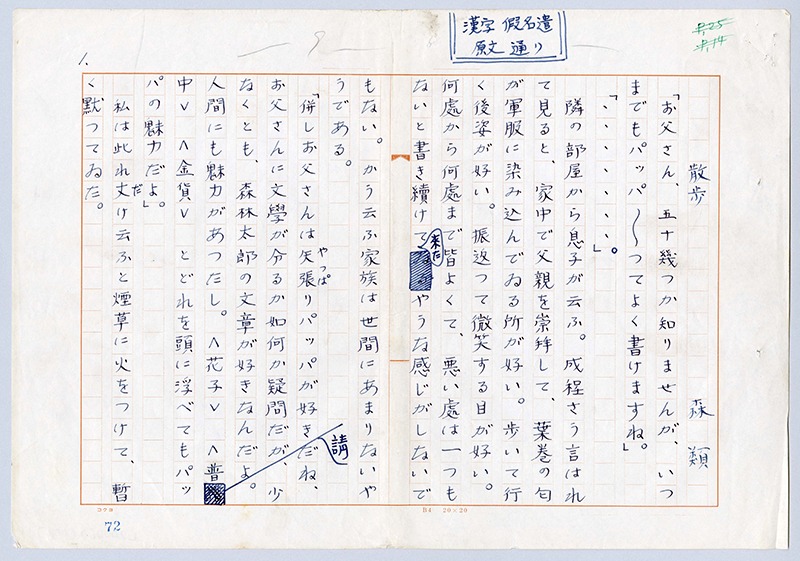 漢字 假名遣
原文 通り
散歩
森 類
「お父さん、五十幾つか知りませんが、いつ
までもパッパ〳〵つてよく書けますね。」
「・・・・・・・」。
隣の部屋から息子が云ふ。成程さう言はれ
て見ると、家中で父親を崇拜して、葉巻の匂
が軍服に染み込んでゐる所が好い。歩いて行
く後姿が好い。振返つて微笑する目が好い。
何處から何處まで皆よくて、悪い處は一つも
ないと書き續けて来たやうな感じがしないで
もない。かう云ふ家族は世間にあまりないや
うである。
「併しお父さんは矢張りパッパが好きだね、
やっぱ
お父さんに文學が分るか如何か疑問だが、少
なくとも、森林太郎の文章が好きなんだよ。
人間にも魅力があつたし。<花子> <普請
中> <金貨> とどれを頭に浮べてもパッ
パの魅力だよ。」
私は此れ丈け云ふと煙草に火をつけて、暫
だ
く默つてゐた。
1.
コクヨ
72
B4 20×20